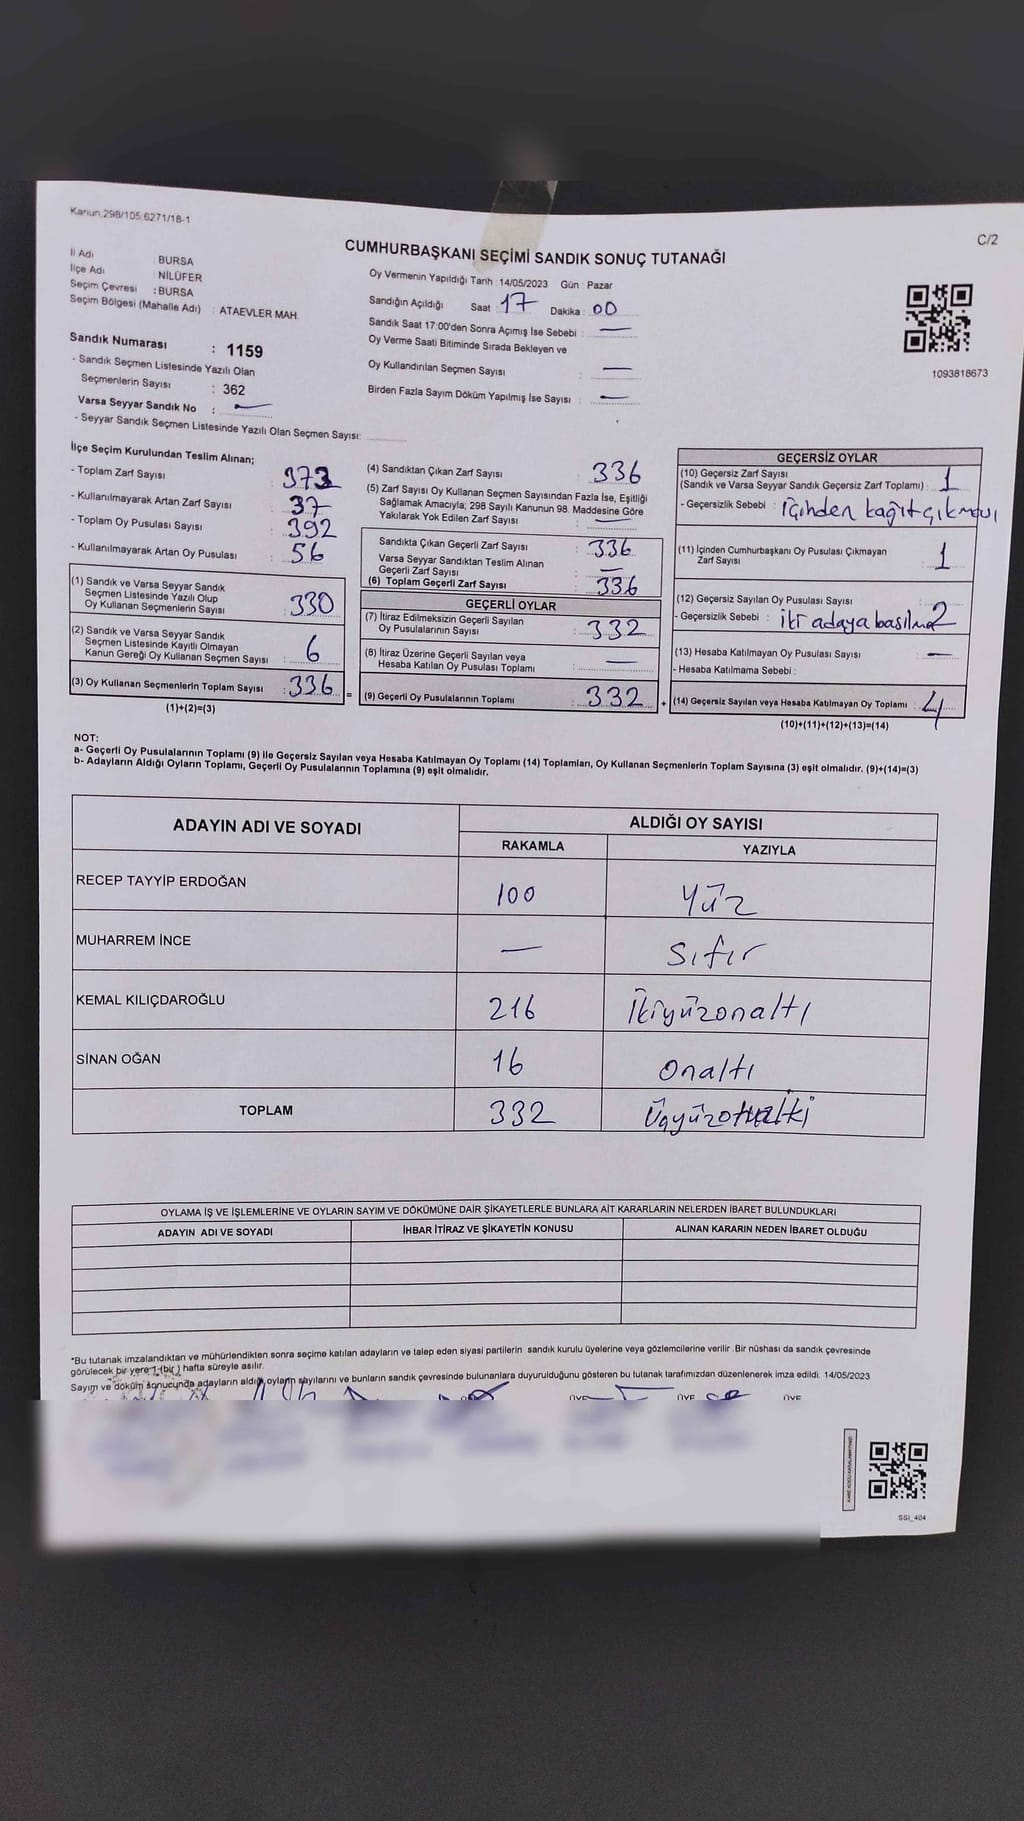 Kanun:298/105,6271/18-1
C/2
CUMHURBAŞKANI SEÇİMİ SANDIK SONUÇ TUTANAĞI
İl Adı : BURSA
İlçe Adı : NİLÜFER
Seçim Çevresi : BURSA
Seçim Bölgesi (Mahalle Adı) : ATAEVLER MAH.
Sandık Numarası : 1159
- Sandık Seçmen Listesinde Yazılı Olan
Seçmenlerin Sayısı : 362
Varsa Seyyar Sandık No : —
- Seyyar Sandık Seçmen Listesinde Yazılı Olan Seçmen Sayısı:
Oy Vermenin Yapıldığı Tarih : 14/05/2023 Gün : Pazar
Sandığın Açıldığı Saat : 17 Dakika : 00
Sandık Saat 17:00'den Sonra Açımış İse Sebebi : —
Oy Verme Saati Bitiminde Sırada Bekleyen ve
Oy Kullandırılan Seçmen Sayısı : —
Birden Fazla Sayım Döküm Yapılmış İse Sayısı : —
1093818673
İlçe Seçim Kurulundan Teslim Alınan;
- Toplam Zarf Sayısı : 373
- Kullanılmayarak Artan Zarf Sayısı : 37
- Toplam Oy Pusulası Sayısı : 392
- Kullanılmayarak Artan Oy Pusulası : 56
(1) Sandık ve Varsa Seyyar Sandık
Seçmen Listesinde Yazılı Olup
Oy Kullanan Seçmenlerin Sayısı : 330
(2) Sandık ve Varsa Seyyar Sandık
Seçmen Listesinde Kayıtlı Olmayan
Kanun Gereği Oy Kullanan Seçmen Sayısı : 6
(3) Oy Kullanan Seçmenlerin Toplam Sayısı : 336 =
(1)+(2)=(3)
(4) Sandıktan Çıkan Zarf Sayısı : 336
(5) Zarf Sayısı Oy Kullanan Seçmen Sayısından Fazla İse, Eşitliği
Sağlamak Amacıyla; 298 Sayılı Kanunun 98. Maddesine Göre
Yakılarak Yok Edilen Zarf Sayısı : —
Sandıkta Çıkan Geçerli Zarf Sayısı : 336
Varsa Seyyar Sandıktan Teslim Alınan
Geçerli Zarf Sayısı : —
(6) Toplam Geçerli Zarf Sayısı : 336
GEÇERLİ OYLAR
(7) İtiraz Edilmeksizin Geçerli Sayılan
Oy Pusulalarının Sayısı : 332
(8) İtiraz Üzerine Geçerli Sayılan veya
Hesaba Katılan Oy Pusulası Toplamı : —
(9) Geçerli Oy Pusulalarının Toplamı : 332 +
GEÇERSİZ OYLAR
(10) Geçersiz Zarf Sayısı
(Sandık ve Varsa Seyyar Sandık Geçersiz Zarf Toplamı) : 1
- Geçersizlik Sebebi : İçinden kağıt çıkmadı
(11) İçinden Cumhurbaşkanı Oy Pusulası Çıkmayan
Zarf Sayısı : 1
(12) Geçersiz Sayılan Oy Pusulası Sayısı : 2
- Geçersizlik Sebebi : iki adaya basılma
(13) Hesaba Katılmayan Oy Pusulası Sayısı : —
- Hesaba Katılmama Sebebi :
(14) Geçersiz Sayılan veya Hesaba Katılmayan Oy Toplamı : 4
(10)+(11)+(12)+(13)=(14)
NOT:
a- Geçerli Oy Pusulalarının Toplamı (9) ile Geçersiz Sayılan veya Hesaba Katılmayan Oy Toplamı (14) Toplamları, Oy Kullanan Seçmenlerin Toplam Sayısına (3) eşit olmalıdır. (9)+(14)=(3)
b- Adayların Aldığı Oyların Toplamı, Geçerli Oy Pusulalarının Toplamına (9) eşit olmalıdır.
ADAYIN ADI VE SOYADI
ALDIĞI OY SAYISI
RAKAMLA YAZIYLA
RECEP TAYYİP ERDOĞAN 100 Yüz
MUHARREM İNCE — Sıfır
KEMAL KILIÇDAROĞLU 216 İkiyüzonaltı
SİNAN OĞAN 16 Onaltı
TOPLAM 332
OYLAMA İŞ VE İŞLEMLERİNE VE OYLARIN SAYIM VE DÖKÜMÜNE DAİR ŞİKAYETLERLE BUNLARA AİT KARARLARIN NELERDEN İBARET BULUNDUKLARI
ADAYIN ADI VE SOYADI İHBAR İTİRAZ VE ŞİKAYETİN KONUSU ALINAN KARARIN NEDEN İBARET OLDUĞU
*Bu tutanak imzalandıktan ve mühürlendikten sonra seçime katılan adayların ve talep eden siyasi partilerin sandık kurulu üyelerine veya gözlemcilerine verilir .Bir nüshası da sandık çevresinde
görülecek bir yere 1 (bir ) hafta süreyle asılır.
Sayım ve döküm sonucunda adayların aldığı oyların sayılarını ve bunların sandık çevresinde bulunanlara duyurulduğunu gösteren bu tutanak tarafımızdan düzenlenerek imza edildi. 14/05/2023
ÜYE ÜYE ÜYE
SSI_404